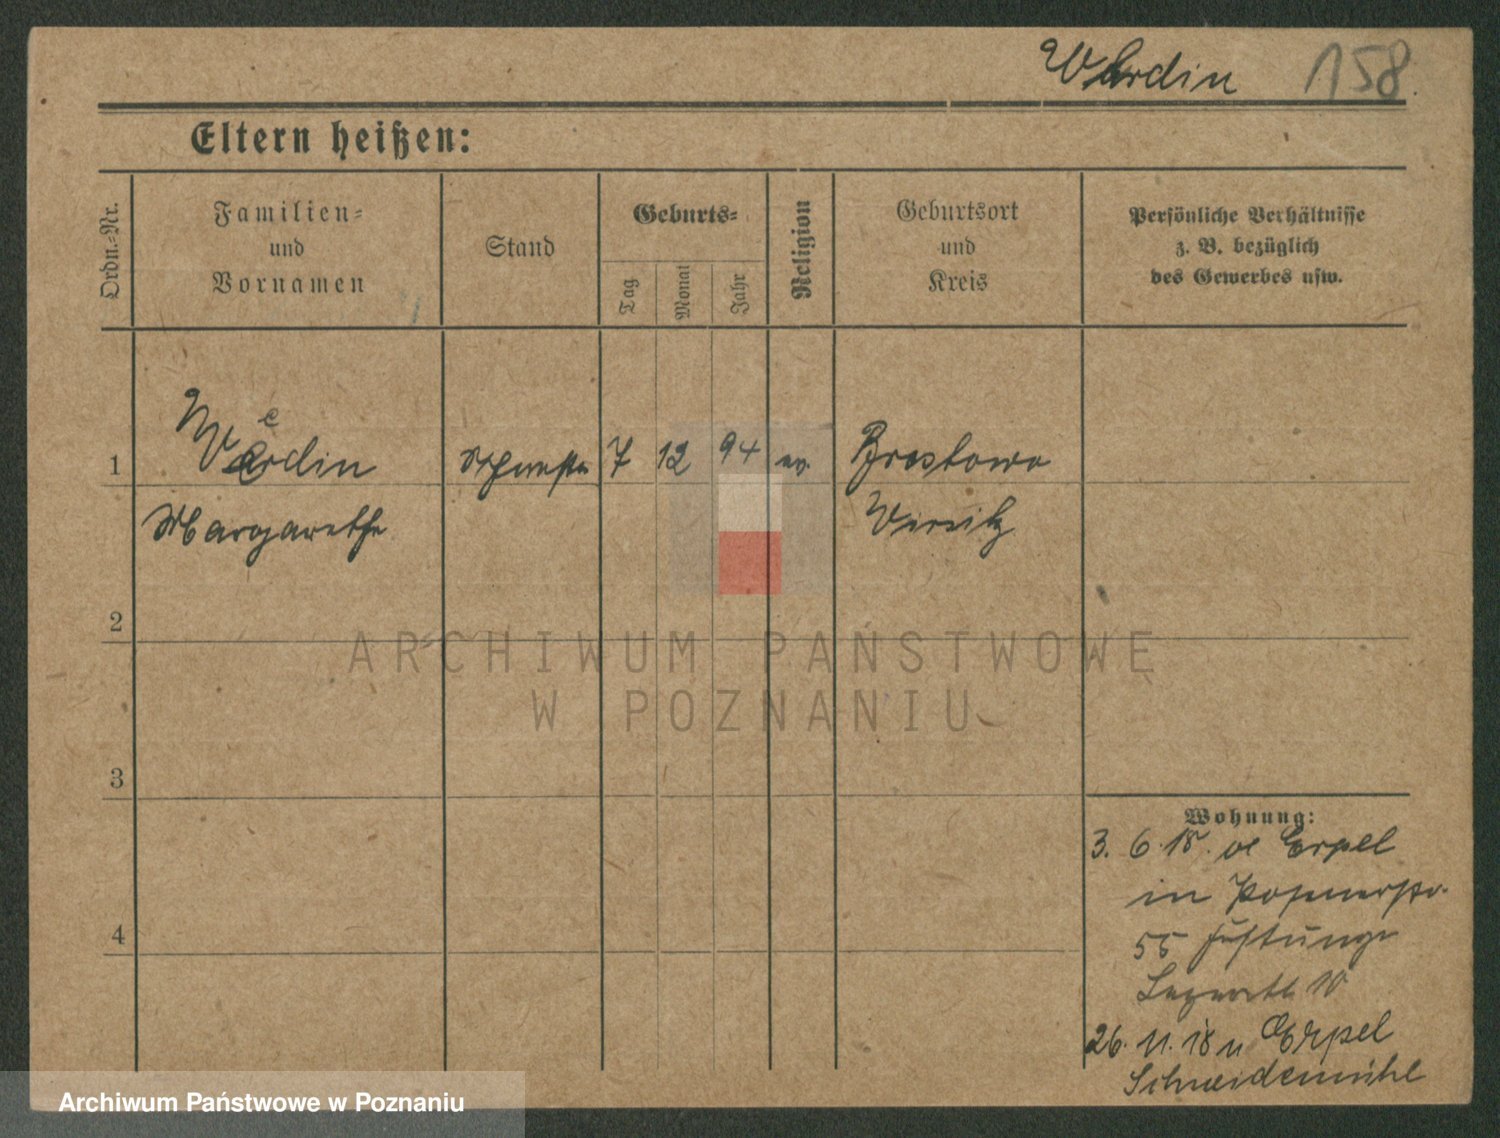 Werdin 158.
Eltern heißen:
Ordn.-Nr.
Familien-
und
Vornamen
Stand
Geburts-
Tag
Monat
Jahr
Religion
Geburtsort
und
Kreis
Persönliche Verhältnisse
z. B. bezüglich
des Gewerbes usw.
e
1 Werdin Schwester 7 12 94 ev. Brostowo
Margarethe Wirsitz
2
ARCHIWUM PAŃSTWOWE
W POZNANIU
3
Wohnung:
3. 6. 18. Erpel
in Posenerstr.
4
55 Festungs
Lazarett 10
26. 11. 18 n Erpel
Schneidemühl
Archiwum Państwowe w Poznaniu